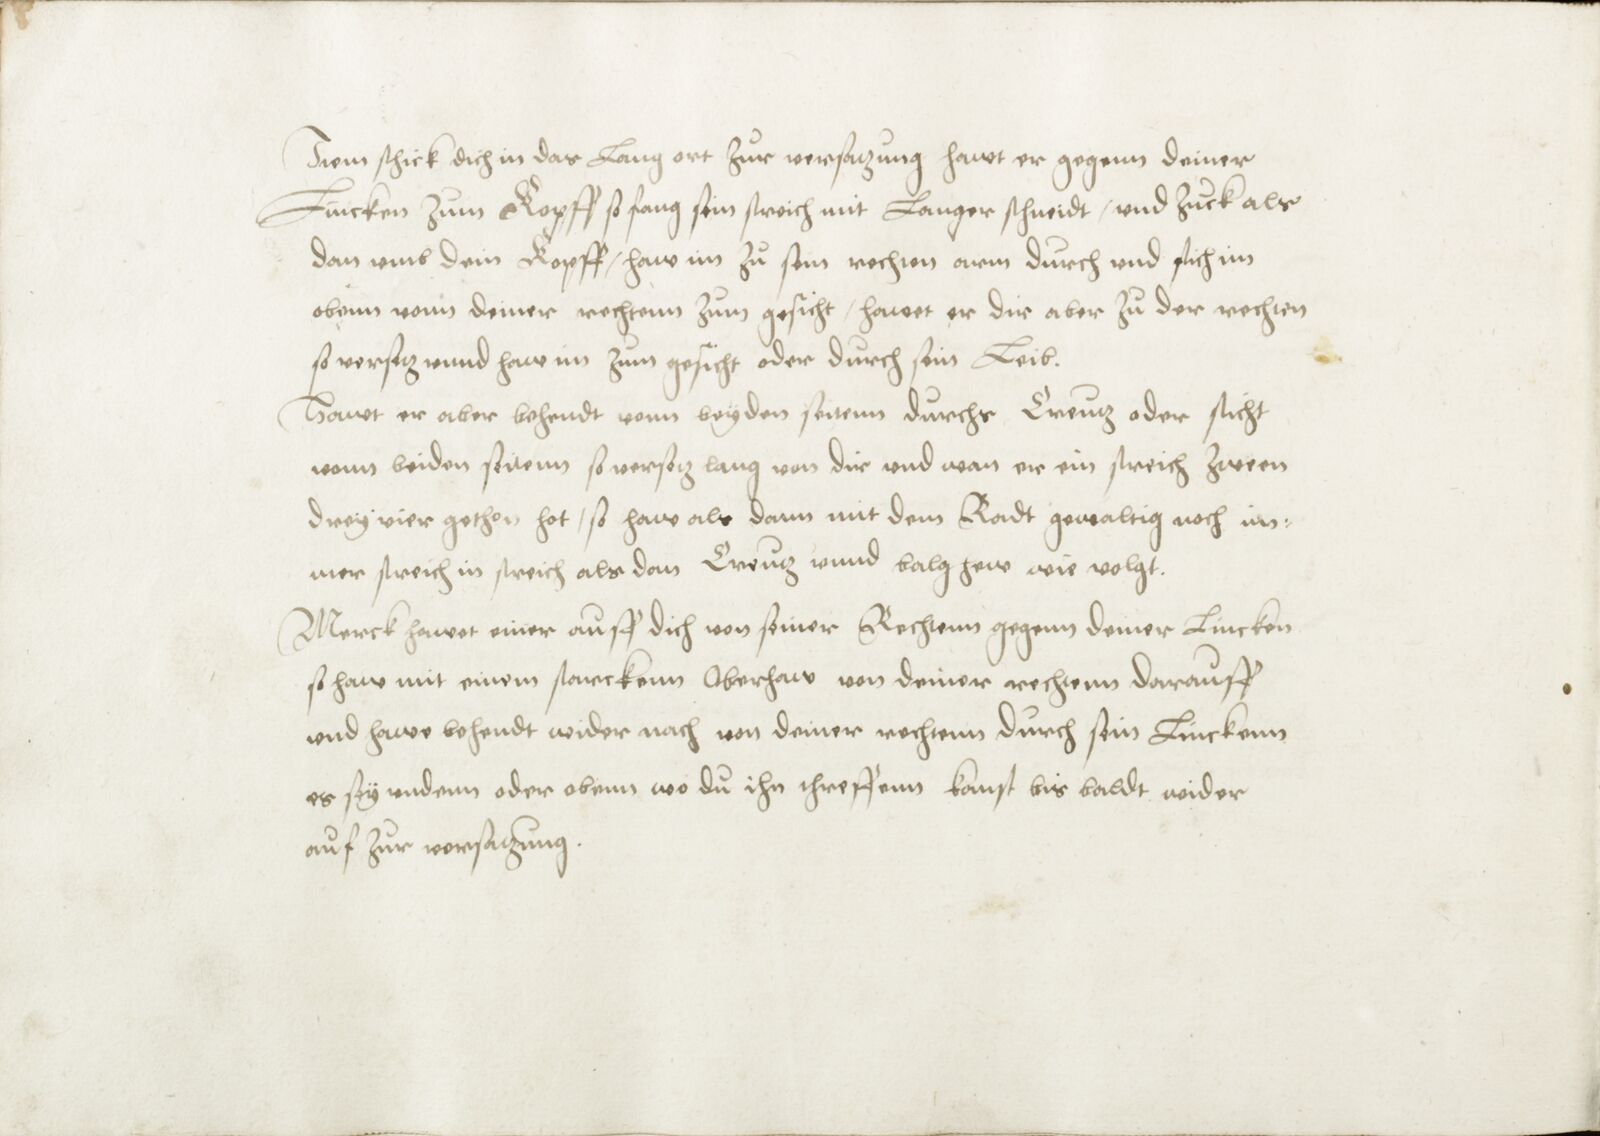 Item schick dich in das Lang ort zur versatzung hawt er gegenn deiner
Lincken zum Kopff so fang sein streich mit Langer schneidt / und zuck als
dan umb dein Kopff / haw im zu sein rechten arm durch und stich im
obenn vonn deiner rechtenn zum gesicht / hawet er dir aber zu der rechten
so versetz unnd haw im zum gesicht oder durch sein Leib.
Hawt er aber behendt vonn beyden seitenn durchs Creutz oder sticht
vonn beiden seitenn so versetz lang von dir und wan er ein streich zween
drey vier gethon hot / so haw als dann mit dem Radt gewaltig noch im:
mer streich in streich als dan Creutz unnd balg hew wie volgt.
Merck hawet einer auff dich von seiner Rechtenn gegenn deiner Lincken
so haw mit einem starckenn Oberhaw von deiner rechtenn darauff
und hawe behendt wider nach von deiner rechtenn durch sein Linckenn
es sey undenn oder obenn wo du ihn threffenn kanst bis baldt wider
auf zur versatzung.